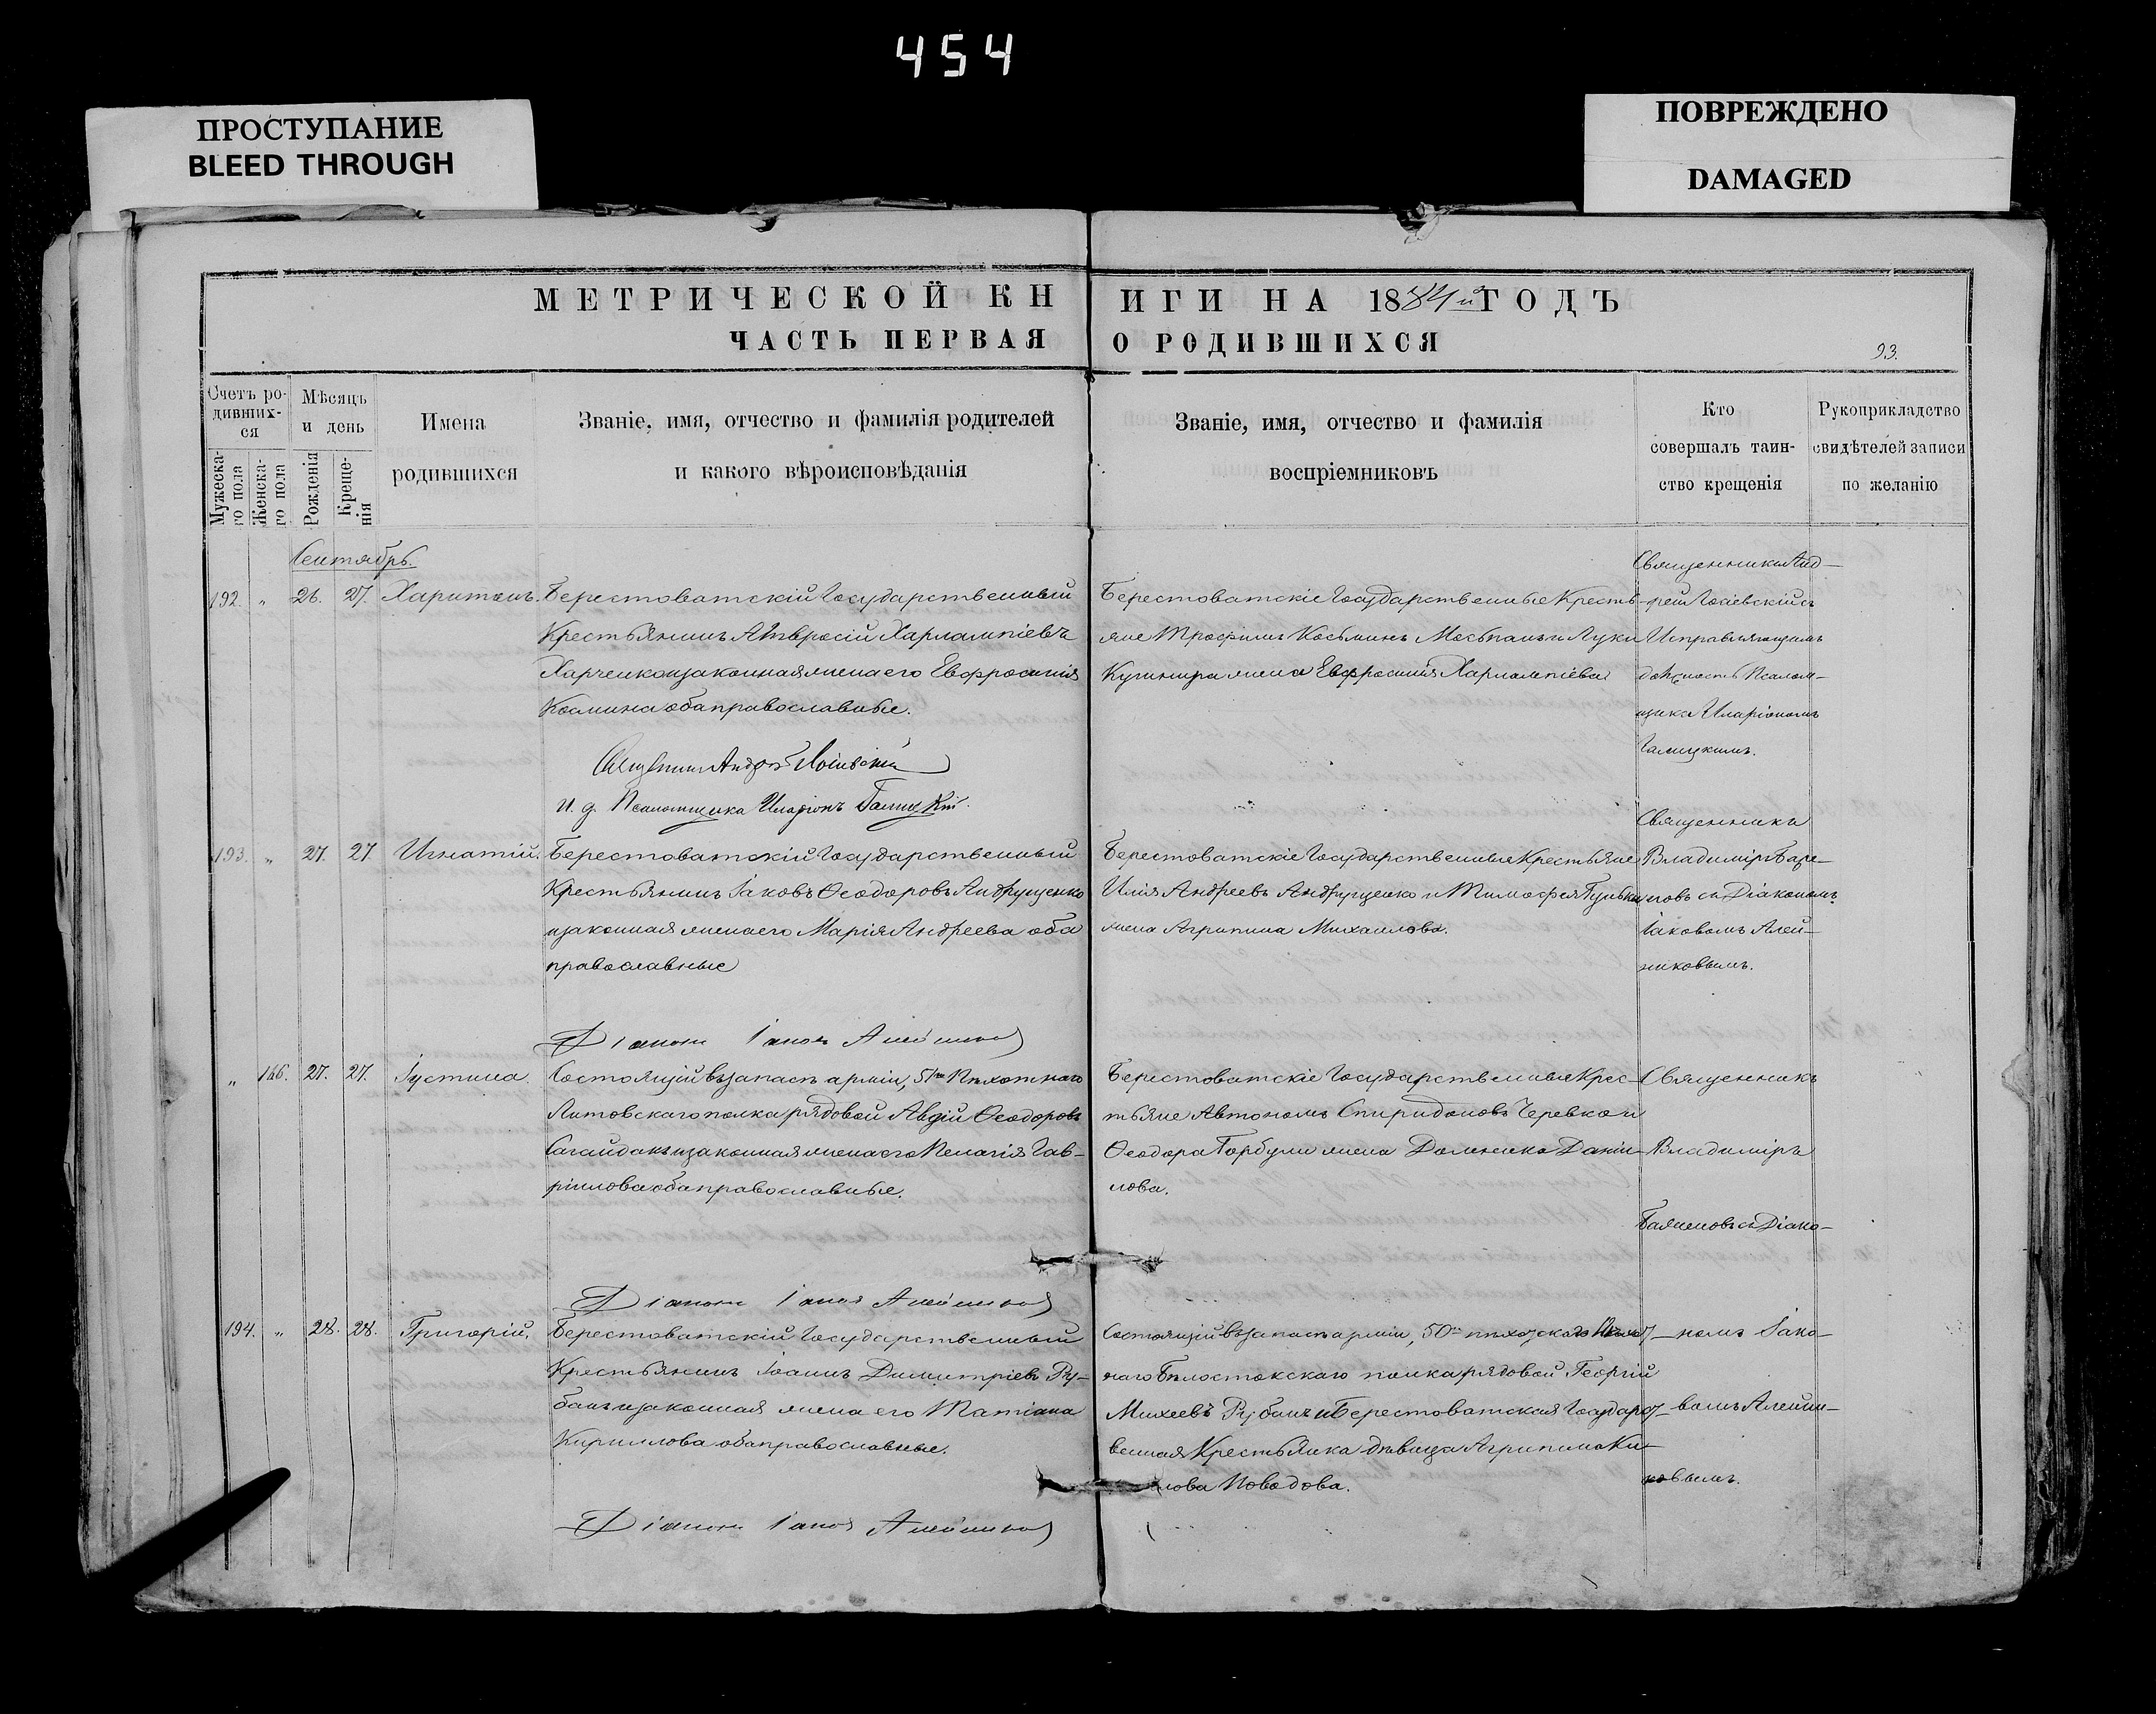 454
ПРОСТУПАНИЕ
BLEED THROUGH
ПОВРЕЖДЕНО
DAMAGED
МЕТРИЧЕСКОЙ КНИГИ НА 1884й ГОДЪ
ЧАСТЬ ПЕРВАЯ О РОДИВШИХСЯ
93.
Счетъ ро-
дивших-
ся
Мужеска-
го пола
Женска-
го пола
Мѣсяцъ
и день
Рожденія
Креще-
нія
Имена
родившихся
Званіе, имя, отчество и фамилія родителей
и какого вѣроисповѣданія
Званіе, имя, отчество и фамилія
воспріемниковъ
Кто
совершалъ таин-
ство крещенія
Рукоприкладство
свидѣтелей записи
по желанію
Сентябрь.
192. „ 26. 27. Харитонъ.
Берестоватскій Государственный
Крестьянинъ Амвросій Харлампіевъ
Харченко и законная жена его Евфросинія
Космина оба православные.
Священникъ Андрей
И. д. Псаломщика Иларіонъ Галицкій.
Берестоватскіе Государственные Кресть-
яне Трофимъ Косьминъ и Луки
Кушнира жена Евфросинія Харлампіева
Священникъ Анд-
рей съ
Исправляющимъ
должность Псалом-
щика Иларіономъ
Галицкимъ.
193. „ 27. 27. Игнатій.
Берестоватскій Государственный
Крестьянинъ Іаковъ Ѳеодоровъ Андрущенко
и законная жена его Марія Андреева оба
православные
Діаконъ Іаковъ Алейниковъ
Берестоватскіе Государственные Крестьяне
Илія Андреевъ Андрущенко и Тимофея
жена Агрипина Михаилова.
Священникъ
Владиміръ Баже-
новъ съ Діакономъ
Іаковомъ Алей-
никовымъ.
„ 166. 27. 27. Іустина.
Состоящій въ запасѣ арміи, 51го Пѣхотнаго
Литовскаго полка рядовой Авдій Ѳеодоровъ
Сагайдакъ и законная жена его Пелагія Гав-
ріилова оба православные.
Діаконъ Іаковъ Алейниковъ
Берестоватскіе Государственные Крес-
тьяне Автономъ Спиридоновъ Черевко и
Ѳеодора Горбули жена Домника Даніи-
лова.
Священникъ
Владиміръ
Баженовъ съ Діако-
194. „ 28. 28. Григорій.
Берестоватскій Государственный
Крестьянинъ Іоаннъ Димитріевъ Ру-
банъ и законная жена его Татіана
Кириллова оба православные.
Діаконъ Іаковъ Алейниковъ
Состоящій въ запасѣ арміи, 50го
наго Бѣлостокскаго полка рядовой Георгій
Михеевъ Рубанъ и Берестоватская Государст-
венная Крестьянка дѣвица Агрипина Ки-
лова
номъ Іако-
вомъ Алейни-
ковымъ.